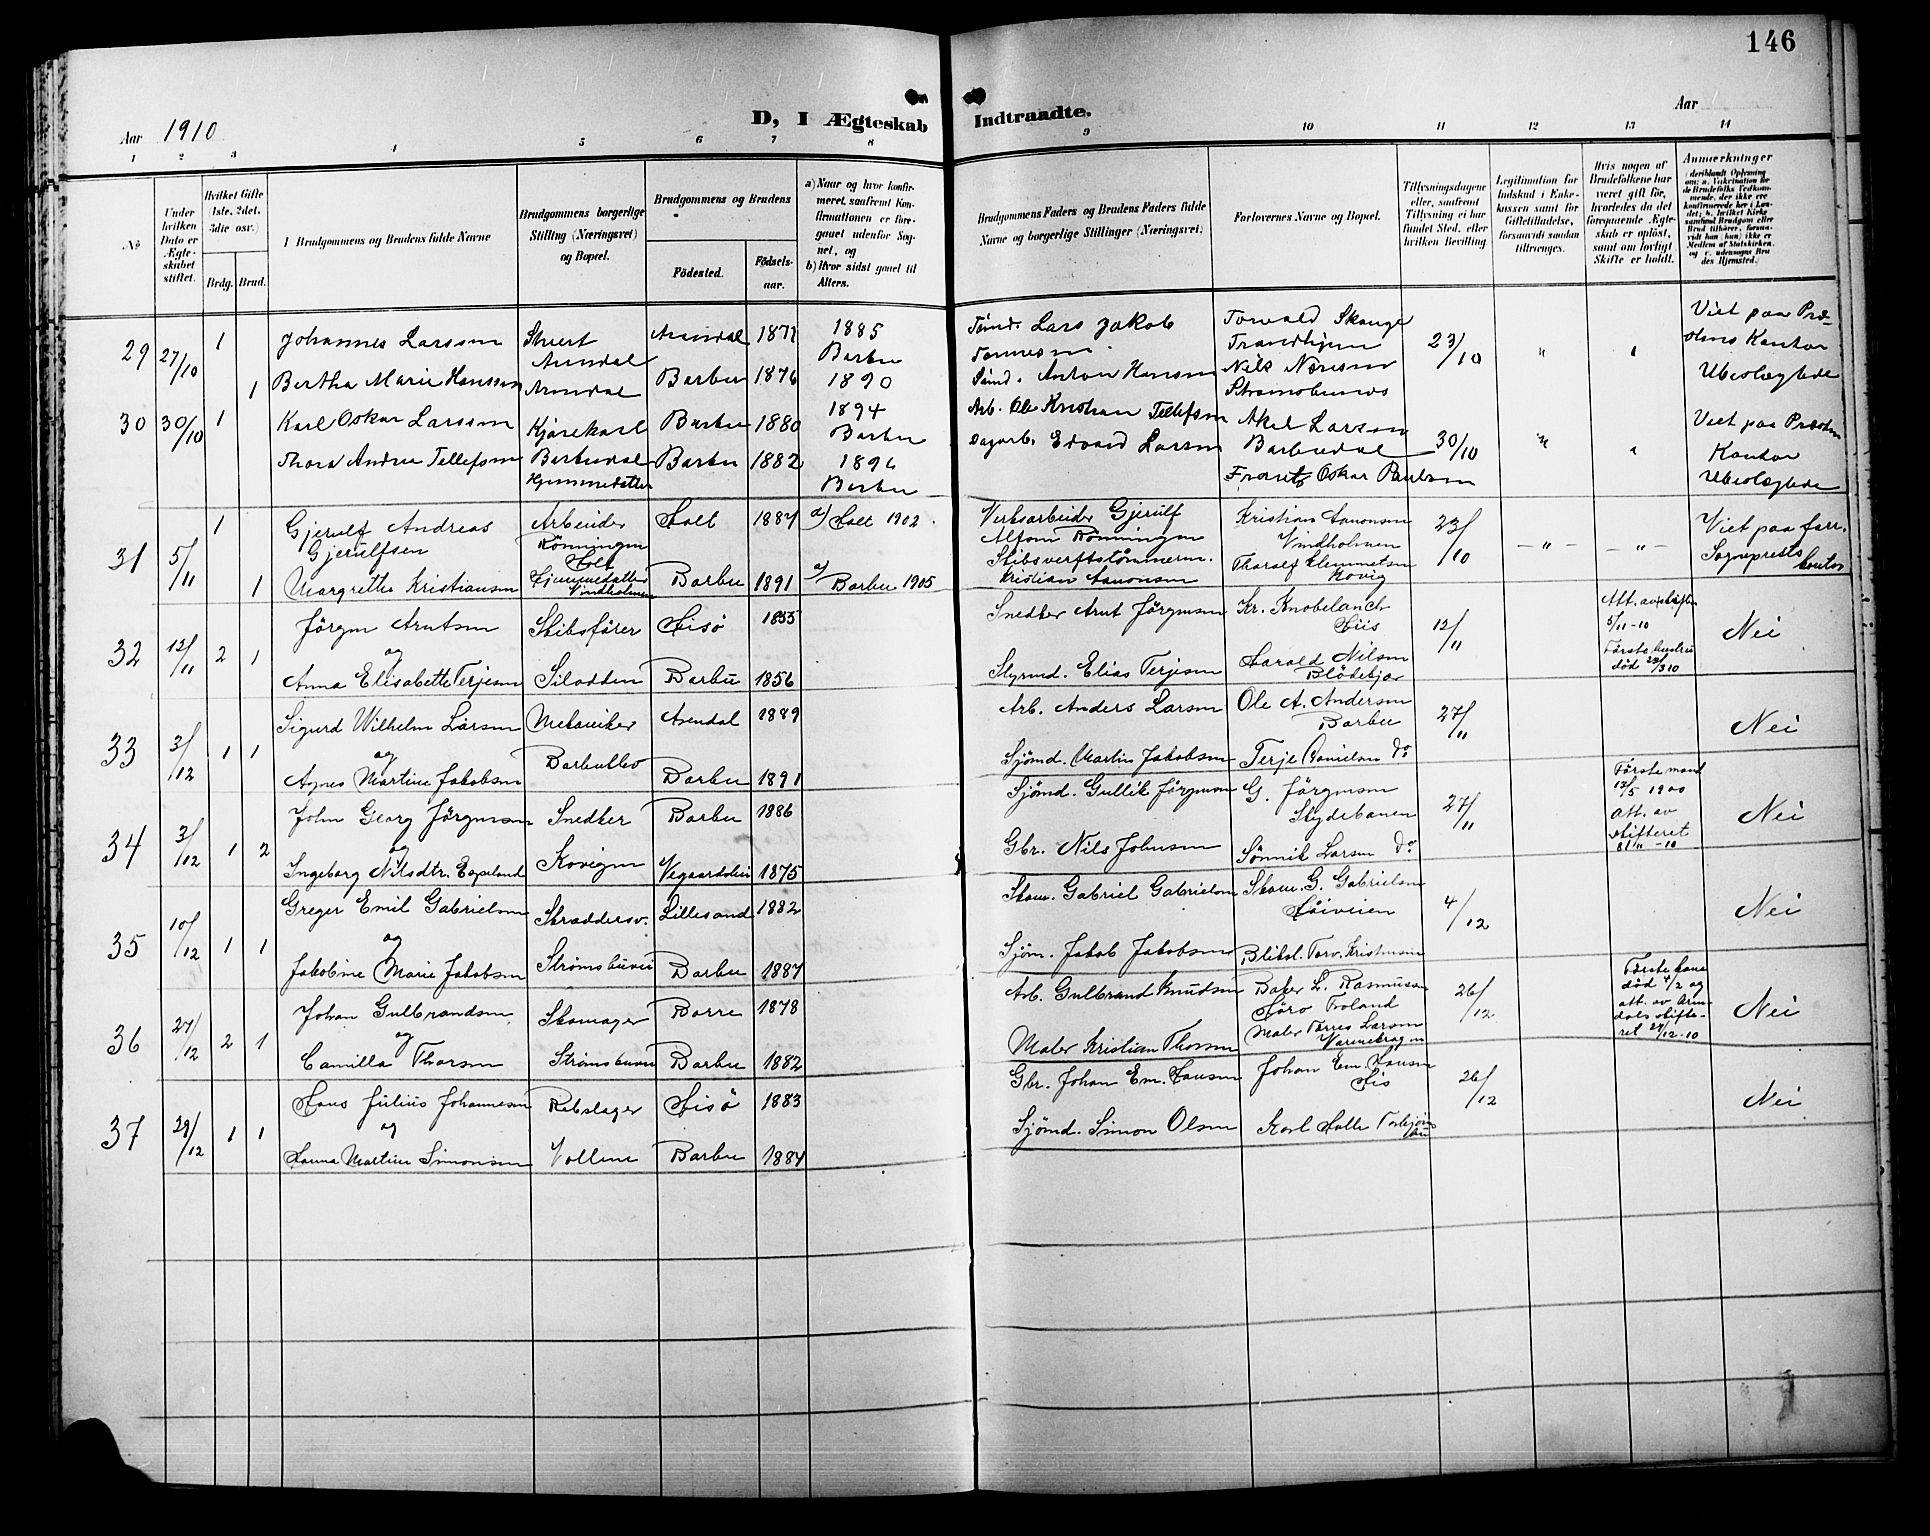 146
Aar 1910
D, I Ægteskab Indtraadte.
Aar
1 2 3 4 5 6 7 8 9 10 11 12 13 14
No
Under hvilken Dato er Ægteskabet stiftet.
Hvilket Gifte 1ste, 2det, 3die osv.)
Brdg. Brud.
Brudgommens og Brudens fulde Navne
Brudgommens borgerlige Stilling (Næringsvei) og Bopæl.
Brudgommens og Brudens
Födested.
Födselsaar.
a) Naar og hvor konfirmeret, saafremt Konfirmationen er foregaaet udenfor Sognet, og
b) Hvor sidst gaaet til Alters.
Brudgommens Faders og Brudens Faders fulde Navne og borgerlige Stillinger (Næringsvei)
Forlovernes Navne og Bopæl.
Tillysningsdagene eller, saafremt Tillysning ei har fundet Sted, efter hvilken Bevilling.
Legitimation for Indskud i Enkekassen samt for Giftetilladelse, forsaavidt saadan tiltrænges.
Hvis nogen af Brudefolkene har været gift för, hvorledes da det foregaaende Ægteskab er oplöst, samt om lovligt Skifte er holdt.
Anmærkninger
29 27/10 1 Johannes Larssen Arendal 1885 Lars Jakob 23/10 Viet paa Præ-
Arendal Barbu stens Kontor
1 Bertha Marie Hanssen Arendal Barbu 1876 1890 Anton Hansen Ubeslægtede
30 30/10 1 Karl Oskar Larssen Kjørekarl Barbu 1880 1894 Barbu Arb. Ole Kristian Tellefsen Aksel Larssen Barbudal 30/10 Viet paa Præsten
Thora Andrea Tellefsen Barbudal Barbu 1882 Barbu Dagarb. Edvard Larsen Kontor
Hjemmedatter Oskar Paulsen Ubeslægtede
31 5/11 1 Gjerulf Andreas Gjerulfsen Arbeider Rønningen Holt Holt 1887 a) Holt 1902. Verksarbeider Gjerulf Alfsen Rønningen Kristian Aanonsen Vindholmen 23/10 — „ — — „ — Viet paa
1 Margrethe Kristiansen Hjemmedatter Vindholmen Barbu 1891 a) Barbu 1905 Skibsverftstømmerm. Kristian Aanonsen Tharalf Klemmetsen Kovig Sogneprests kontor
32 12/11 2 1 Jörgen Arntsen Skibsförer Hisö 1855 Snedker Arnt Jörgensen Kr. Knobelauch His 12/11 Att. av skifter 5/11-10 Nei
og
Anna Elisabette Terjesen Silodden Barbu 1856 Styrmd. Elias Terjesen Harald Nilsen Blödekjær Förste hustru död
33 3/12 1 1 Sigurd Wilhelm Larsen Mekaniker Arendal 1889 Arb. Anders Larsen Ole A. Andersen Barbu 27/11 Nei
og
Agnes Martine Jakobsen Barbu 1891 Sjömd. Martin Jakobsen Terje Danielsen do
34 3/12 1 2 John Georg Jörgensen Snedker Barbu 1886 Sjömd. Gullik Jörgensen G. Jörgensen Skydebanen 27/11 Förste mand 1900 att. av skifteret Nei
og
Ingeborg Nilsdtr. Espeland Kovigen Vegaardshei 1875 Gbr. Nils Johnsen Sönnik Larsen do
35 10/12 1 1 Greger Emil Gabrielsen Skreddersv. Lillesand 1882 Skom. Gabriel Gabrielsen Skom. G. Gabrielsen Høiveien 4/12 Nei
og
Jakobine Marie Jakobsen Strømsbuvei Barbu 1887 Sjöm. Jakob Jakobsen Bliksl. Torv. Kristensen
36 27/12 2 1 Johan Gulbrandsen Skomager Borre 1878 Arb. Gulbrand Knudsen Baker L. Rasmussen 26/12 Første kone död 4/2 og att. av Arendals skifteret Nei
og
Camilla Thorsen Strømsbuvei Barbu 1882 Maler Kristian Thorsen Maler Larsen
37 29/12 1 1 Hans Julius Johannesen Rebslager Hisö 1883 Gbr. Johan Em. Hansen Johan Em. Hansen His 26/12 Nei
og
Hanna Martine Simonsen Vollene Barbu 1884 Sjömd. Simon Olsen Karl Holte